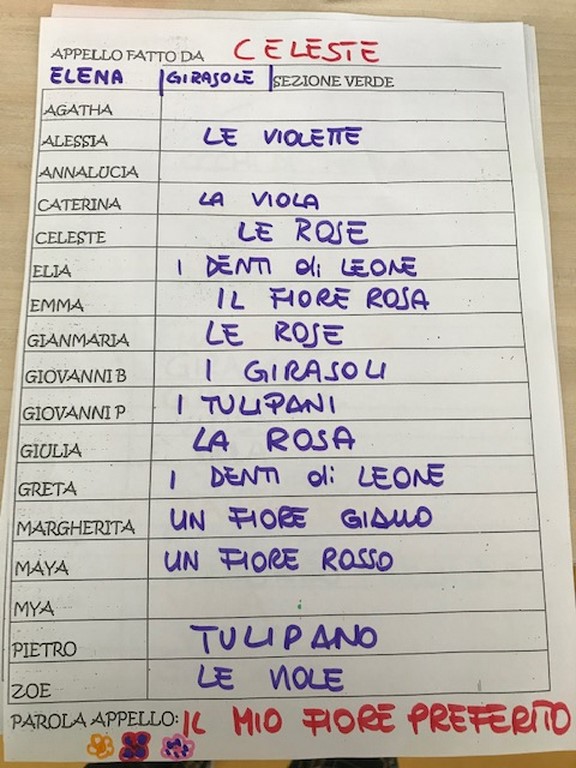 APPELLO FATTO DA CELESTE
ELENA GIRASOLE SEZIONE VERDE
AGATHA
ALESSIA LE VIOLETTE
ANNALUCIA
CATERINA LA VIOLA
CELESTE LE ROSE
ELIA I DENTI di LEONE
EMMA IL FIORE ROSA
GIANMARIA LE ROSE
GIOVANNI B I GIRASOLI
GIOVANNI P I TULIPANI
GIULIA LA ROSA
GRETA I DENTI di LEONE
MARGHERITA UN FIORE GIALLO
MAYA UN FIORE ROSSO
MYA
PIETRO TULIPANO
ZOE LE VIOLE
PAROLA APPELLO: IL MIO FIORE PREFERITO